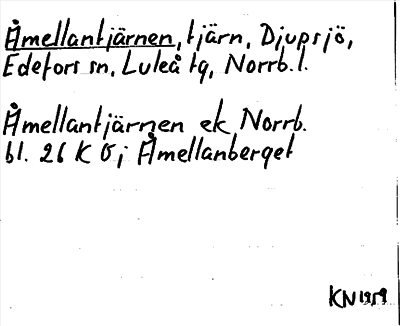 Åmellantjärnen, tjärn, Djupsjö,
Edefors sn, Luleå tg, Norrb. l.
Åmellantjärnen ek Norrb.
bl. 26 K V; Åmellanberget
KN 1959